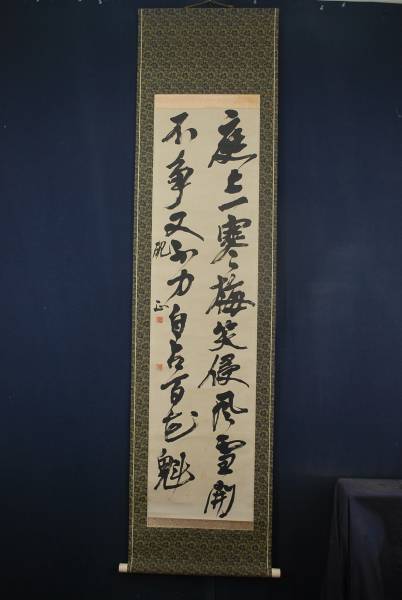 庭上一寒梅笑侵風雪開
不争又不力自占百花魁